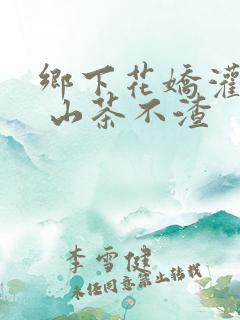 鄉下花嬌灌
山茶不渣
李雪健
未经同意禁止转载